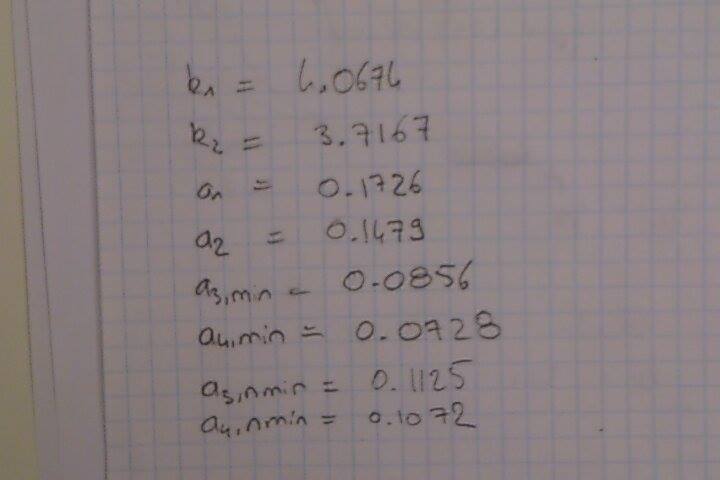 k₁ = 4.0674
k₂ = 3.7167
a₁ = 0.1726
a₂ = 0.1479
a₃,min = 0.0856
a₄,min = 0.0728
a₃,nmin = 0.1125
a₄,nmin = 0.1072